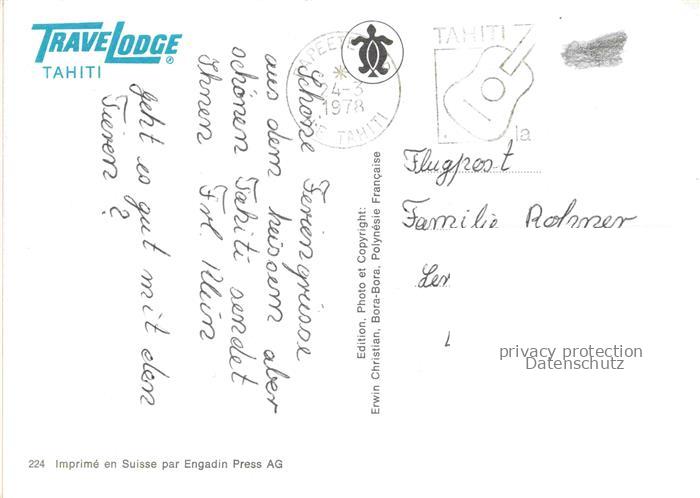 TRAVELODGE ®
TAHITI
PAPEETE
24-3
1978
TAHITI
TAHITI
la
Schöne Feriengrüsse
aus dem heissem aber
schönen Tahiti sendet
Ihnen Frl. Klein
geht es gut mit den
Tieren ?
Flugpost
Familie Rohner
privacy protection
Datenschutz
Edition, Photo et Copyright:
Erwin Christian, Bora-Bora, Polynésie Française
224 Imprimé en Suisse par Engadin Press AG